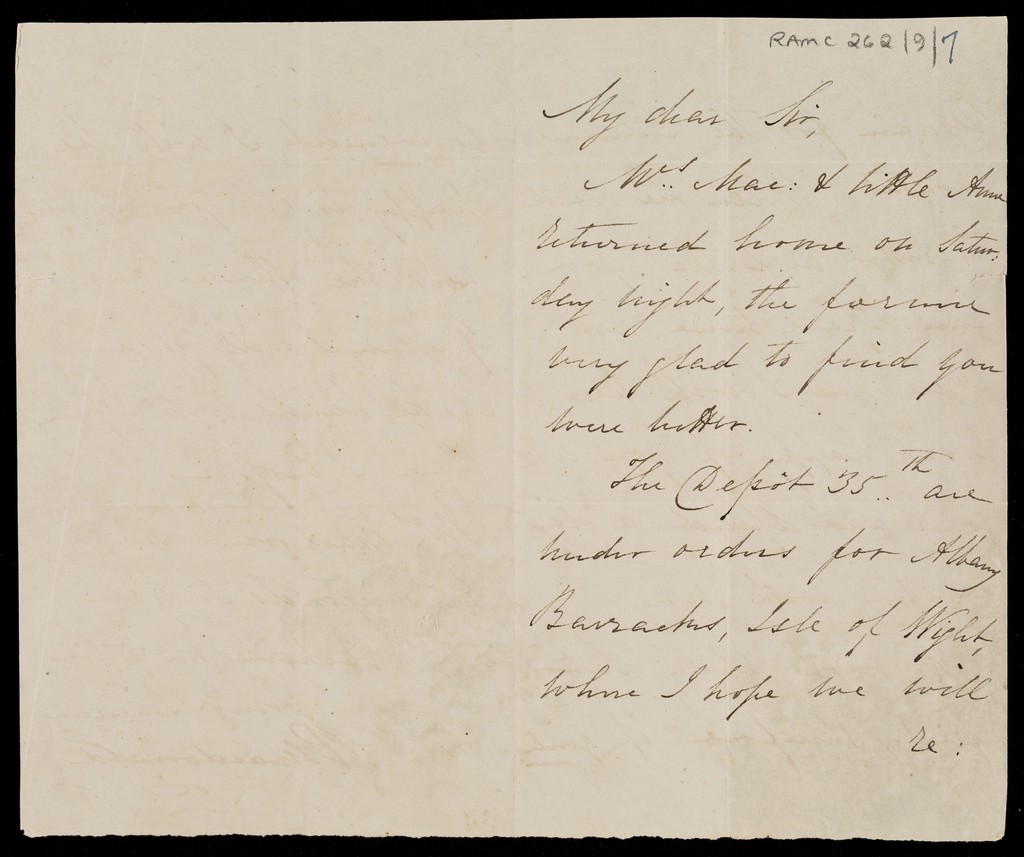 RAMC 262/9/7
My dear Sir,
Mrs. Mac: & little Anne
returned home on Satur:
day night, the former
very glad to find you
were better.
The Depôt 35th are
under orders for Albany
Barracks, Isle of Wight,
where I hope we will
re: